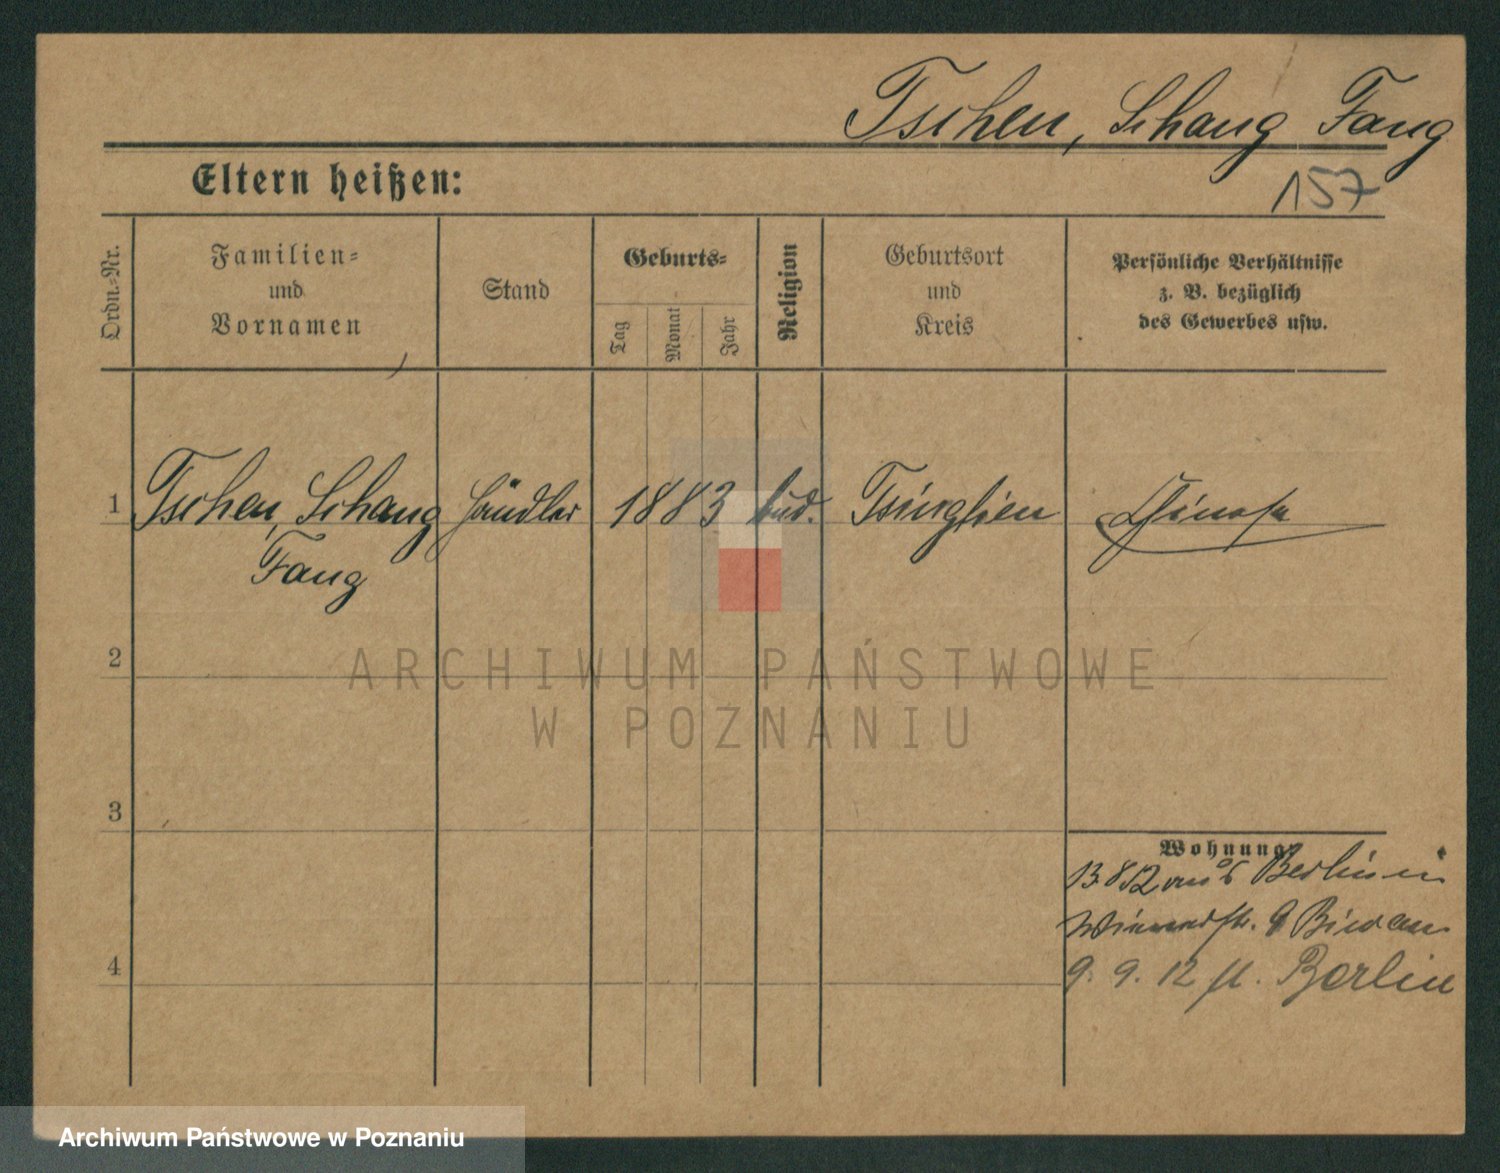 Tschen, Schang Fang
Eltern heißen:
157
Ordn.-Nr.
Familien-
und
Vornamen
Stand
Geburts-
Tag
Monat
Jahr
Religion
Geburtsort
und
Kreis
Persönliche Verhältnisse
z. B. bezüglich
des Gewerbes usw.
1 Tschen, Schang Händler 1883 bud. Tsingtien Chinese
Fang
2
ARCHIWUM PAŃSTWOWE
W POZNANIU
3
Wohnung
13.8.12 aus Berlin in
9
4
9. 9. 12 Berlin
Archiwum Państwowe w Poznaniu